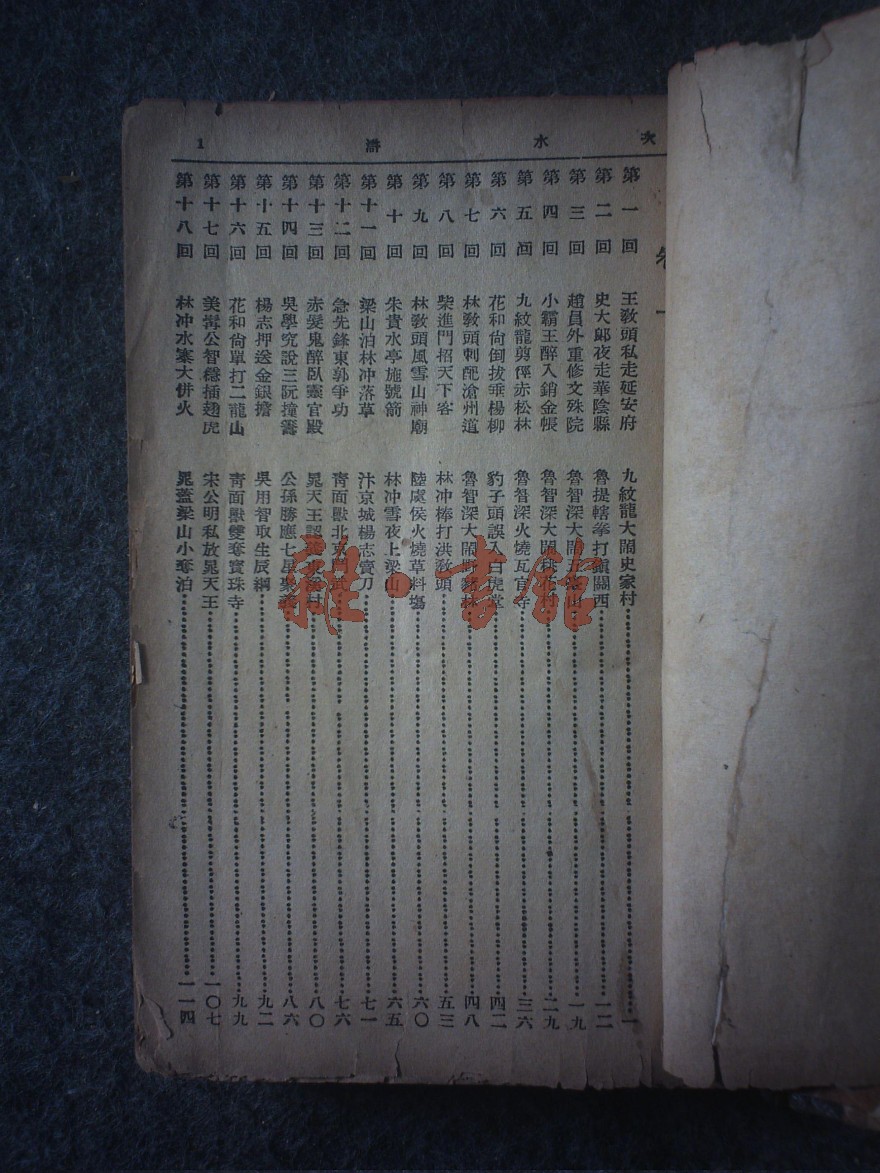 水滸
1
卷一
第一回 王教頭私走延安府 九紋龍大鬧史家村 一
第二回 史大郞夜走華陰縣 魯提轄拳打鎭關西 一二
第三回 趙員外重修文殊院 魯智深大鬧 山 一九
第四回 小霸王醉入銷金帳 魯智深大鬧 二九
第五回 九紋龍剪徑赤松林 魯智深火燒瓦官寺 三六
第六回 花和尙倒拔垂楊柳 豹子頭誤入白虎堂 四二
第七回 林敎頭刺配滄州道 魯智深大鬧野豬林 四八
第八回 柴進門招天下客 林冲棒打洪敎頭 五三
第九回 林敎頭風雪山神廟 陸虞侯火燒草料塲 六〇
第十回 朱貴水亭施號箭 林冲雪夜上梁山 六五
第十一回 梁山泊林冲落草 汴京城楊志賣刀 七一
第十二回 急先鋒東郭爭功 靑面獸北京鬥武 七六
第十三回 赤髮鬼醉臥靈官殿 晁天王認 村 八〇
第十四回 吳學究說三阮撞籌 公孫勝應七星聚義 八六
第十五回 楊志押送金銀擔 吳用智取生辰綱 九二
第十六回 花和尙單打二龍山 靑面獸雙奪寶珠寺 九九
第十七回 美髯公智穩插翅虎 宋公明私放晁天王 一〇七
第十八回 林冲水寨大併火 晁蓋梁山小奪泊 一一四
雜·書館